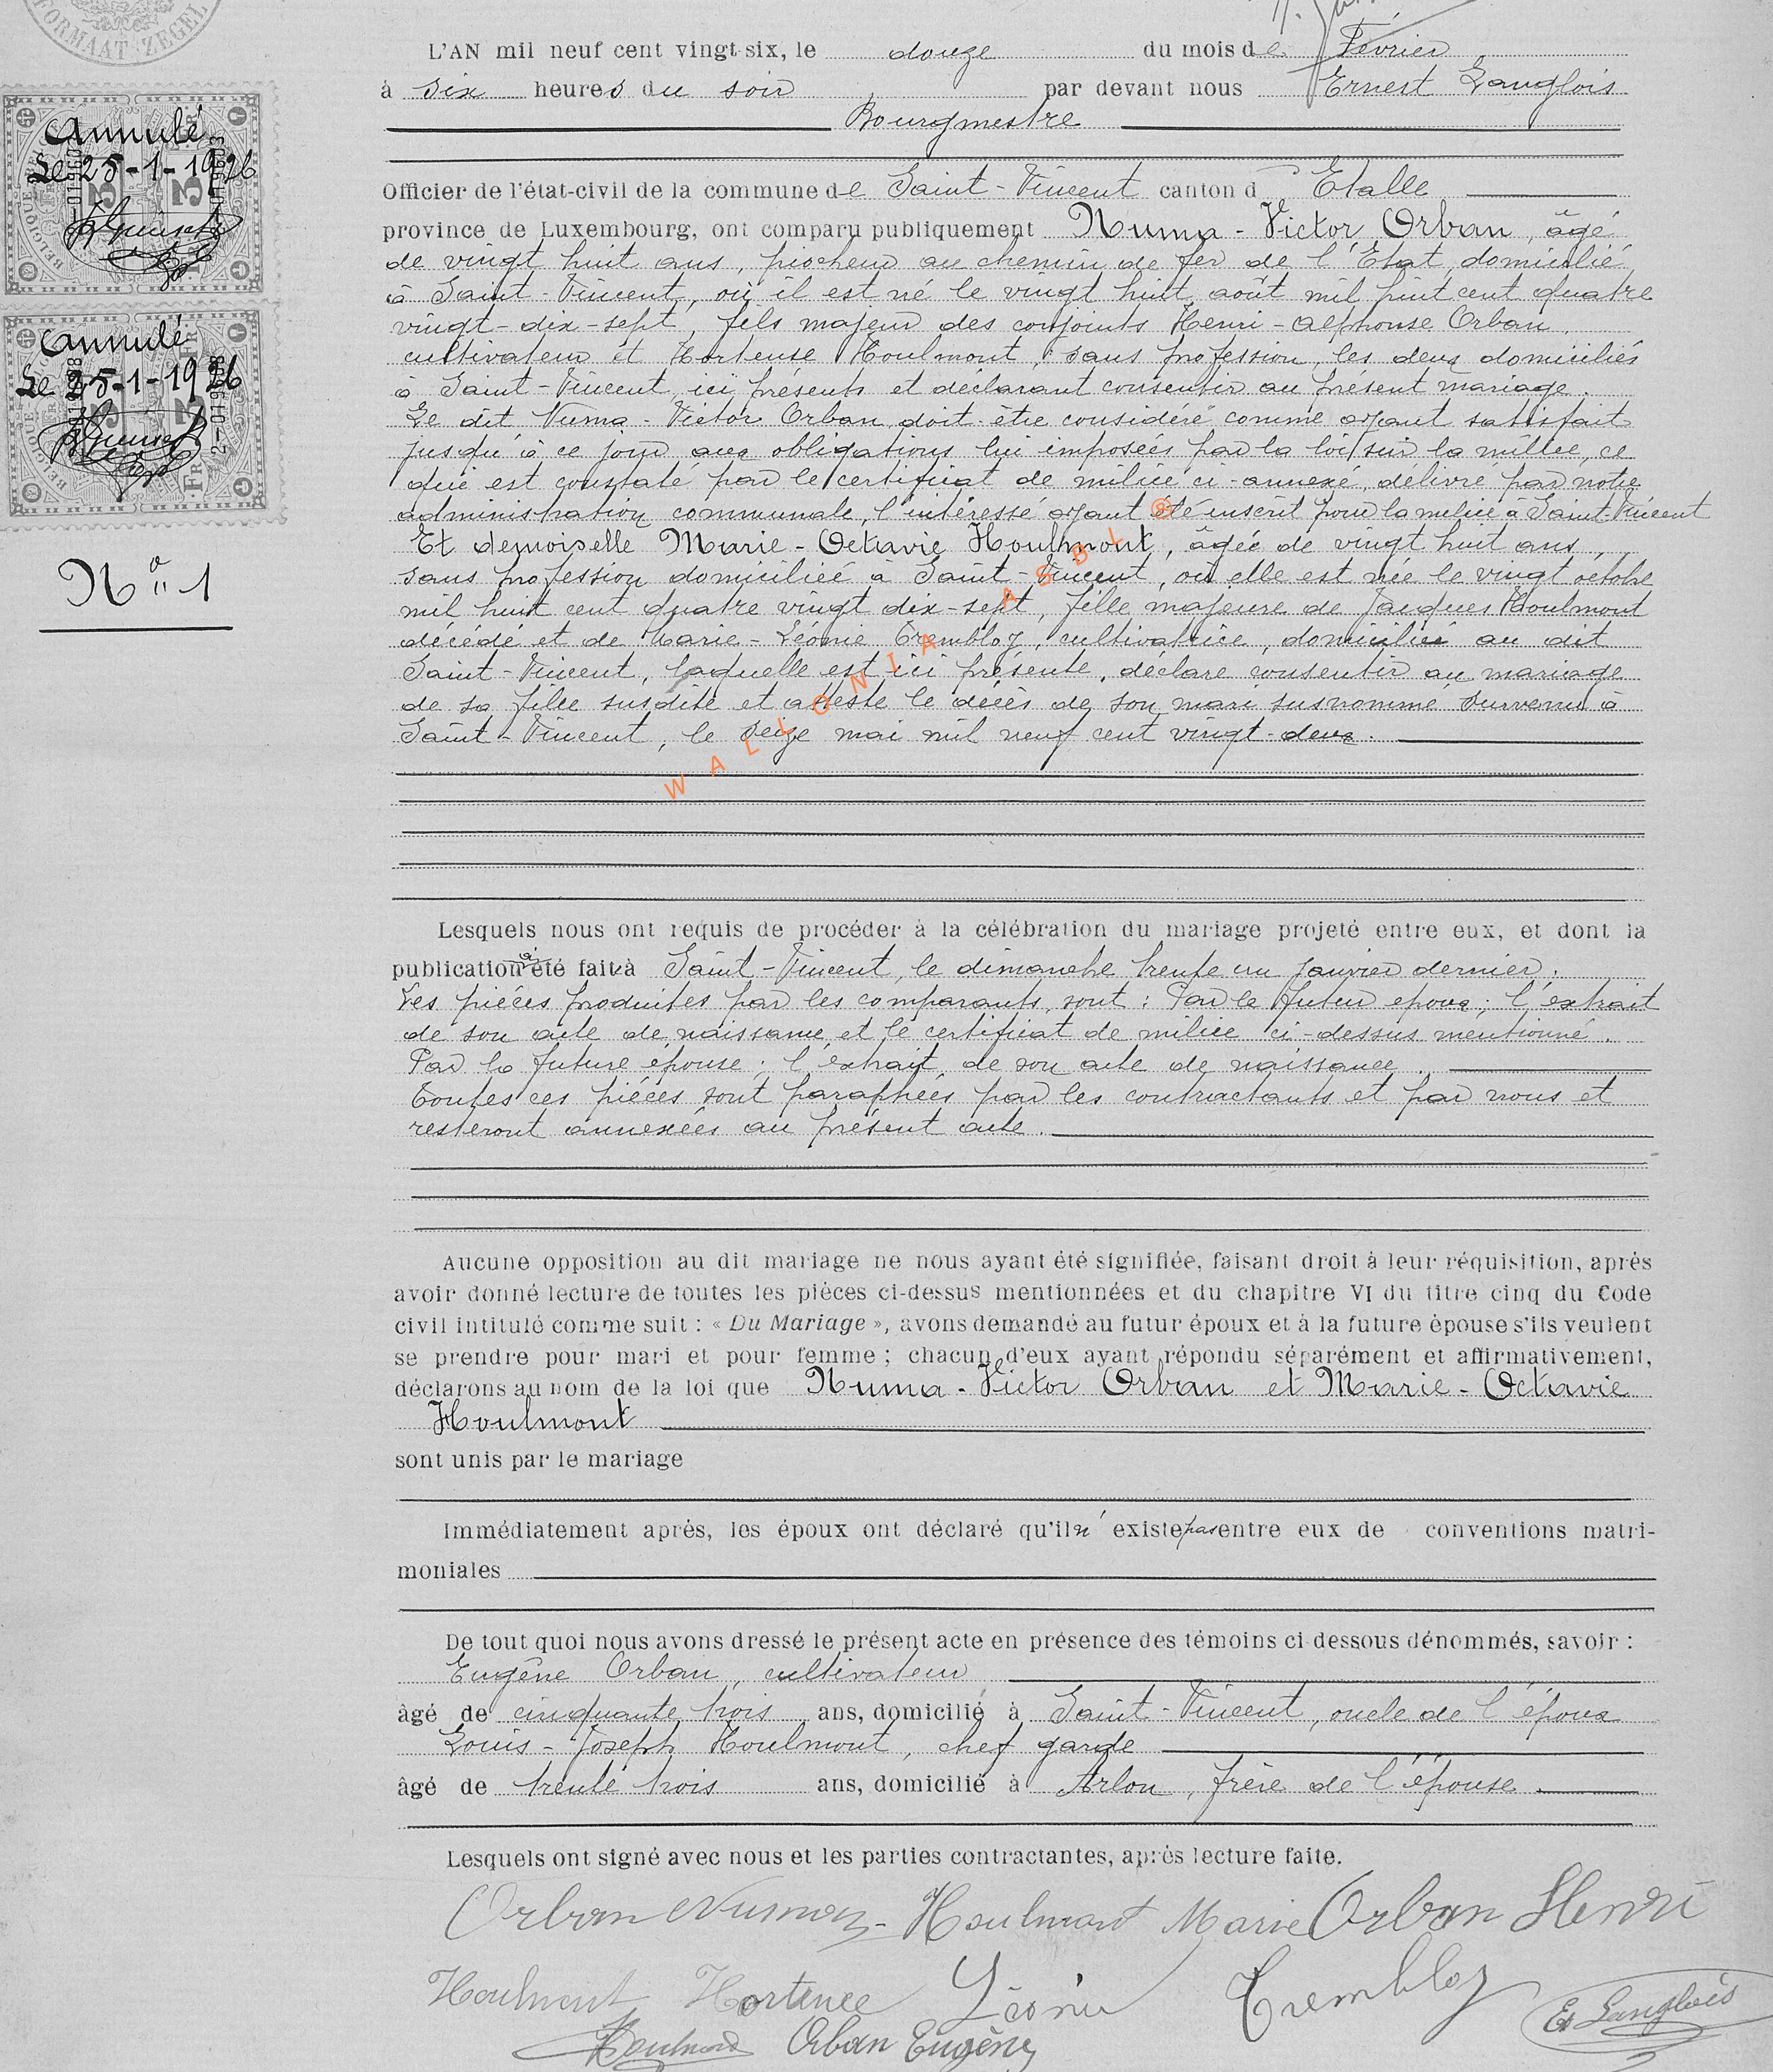 FORMAAT-ZEGEL
L'AN mil neuf cent vingt-six, le douze du mois de Février
à six heures du soir par devant nous Ernest Langlois
Bourgmestre
Officier de l'état-civil de la commune de Saint-Vincent canton d' Etalle
province de Luxembourg, ont comparu publiquement Numa-Victor Orban, âgé
de vingt huit ans, piocheur au chemin de fer de l'Etat, domicilié
à Saint-Vincent, où il est né le vingt huit août mil huit cent quatre
vingt-dix-sept, fils majeur des conjoints Henri-Alphonse Orban,
cultivateur et Hortense Houlmont, sans profession, les deux domiciliés
à Saint-Vincent, ici présents et déclarant consentir au présent mariage.
Le dit Numa-Victor Orban doit être considéré comme ayant satisfait
jusqu'à ce jour aux obligations lui imposées par la loi sur la milice, ce
qui est constaté par le certificat de milice ci-annexé, délivré par notre
administration communale, l'intéressé ayant été inscrit pour la milice à Saint-Vincent
Et demoiselle Marie-Octavie Houlmont, âgée de vingt huit ans,
sans profession domiciliée à Saint-Vincent, où elle est née le vingt octobre
mil huit cent quatre vingt dix-sept, fille majeure de Jacques Houlmont
décédé et de Marie-Léonie Trembloy, cultivatrice, domiciliée au dit
Saint-Vincent, laquelle est ici présente, déclare consentir au mariage
de sa fille susdite et atteste le décès de son mari susnommé survenu à
Saint-Vincent, le seize mai mil neuf cent vingt-deux.
WALLONIA ASBL ®
Annulé
Le 25-1-1926
Annulé
Le 25-1-1926
No 1
Lesquels nous ont requis de procéder à la célébration du mariage projeté entre eux, et dont la
publication a été faite à Saint-Vincent, le dimanche trente un janvier dernier.
Les pièces produites par les comparants, sont: Par le futur epoux; l'extrait
de son acte de naissance et le certificat de milice ci-dessus mentionné.
Par la future epouse; l'extrait de son acte de naissance.
Toutes ces pièces sont paraphées par les contractants et par nous et
resteront annexées au présent acte.
Aucune opposition au dit mariage ne nous ayant été signifiée, faisant droit à leur réquisition, après
avoir donné lecture de toutes les pièces ci-dessus mentionnées et du chapitre VI du titre cinq du Code
civil intitulé comme suit : « Du Mariage », avons demandé au futur époux et à la future épouse s'ils veulent
se prendre pour mari et pour femme ; chacun d'eux ayant répondu séparément et affirmativement,
déclarons au nom de la loi que Numa-Victor Orban et Marie-Octavie
Houlmont
sont unis par le mariage
Immédiatement après, les époux ont déclaré qu'il n'existe pas entre eux de conventions matri-
moniales
De tout quoi nous avons dressé le présent acte en présence des témoins ci-dessous dénommés, savoir :
Eugène Orban, cultivateur
âgé de cinquante trois ans, domicilié à Saint-Vincent, oncle de l'époux
Louis-Joseph Houlmont, chef garde
âgé de trente trois ans, domicilié à Arlon, frère de l'épouse.
Lesquels ont signé avec nous et les parties contractantes, après lecture faite.
Orban Numa Houlmont Marie Orban Henri
Houlmont Hortence Léonie Trembloy
Houlmont Orban Eugène Et Langlois